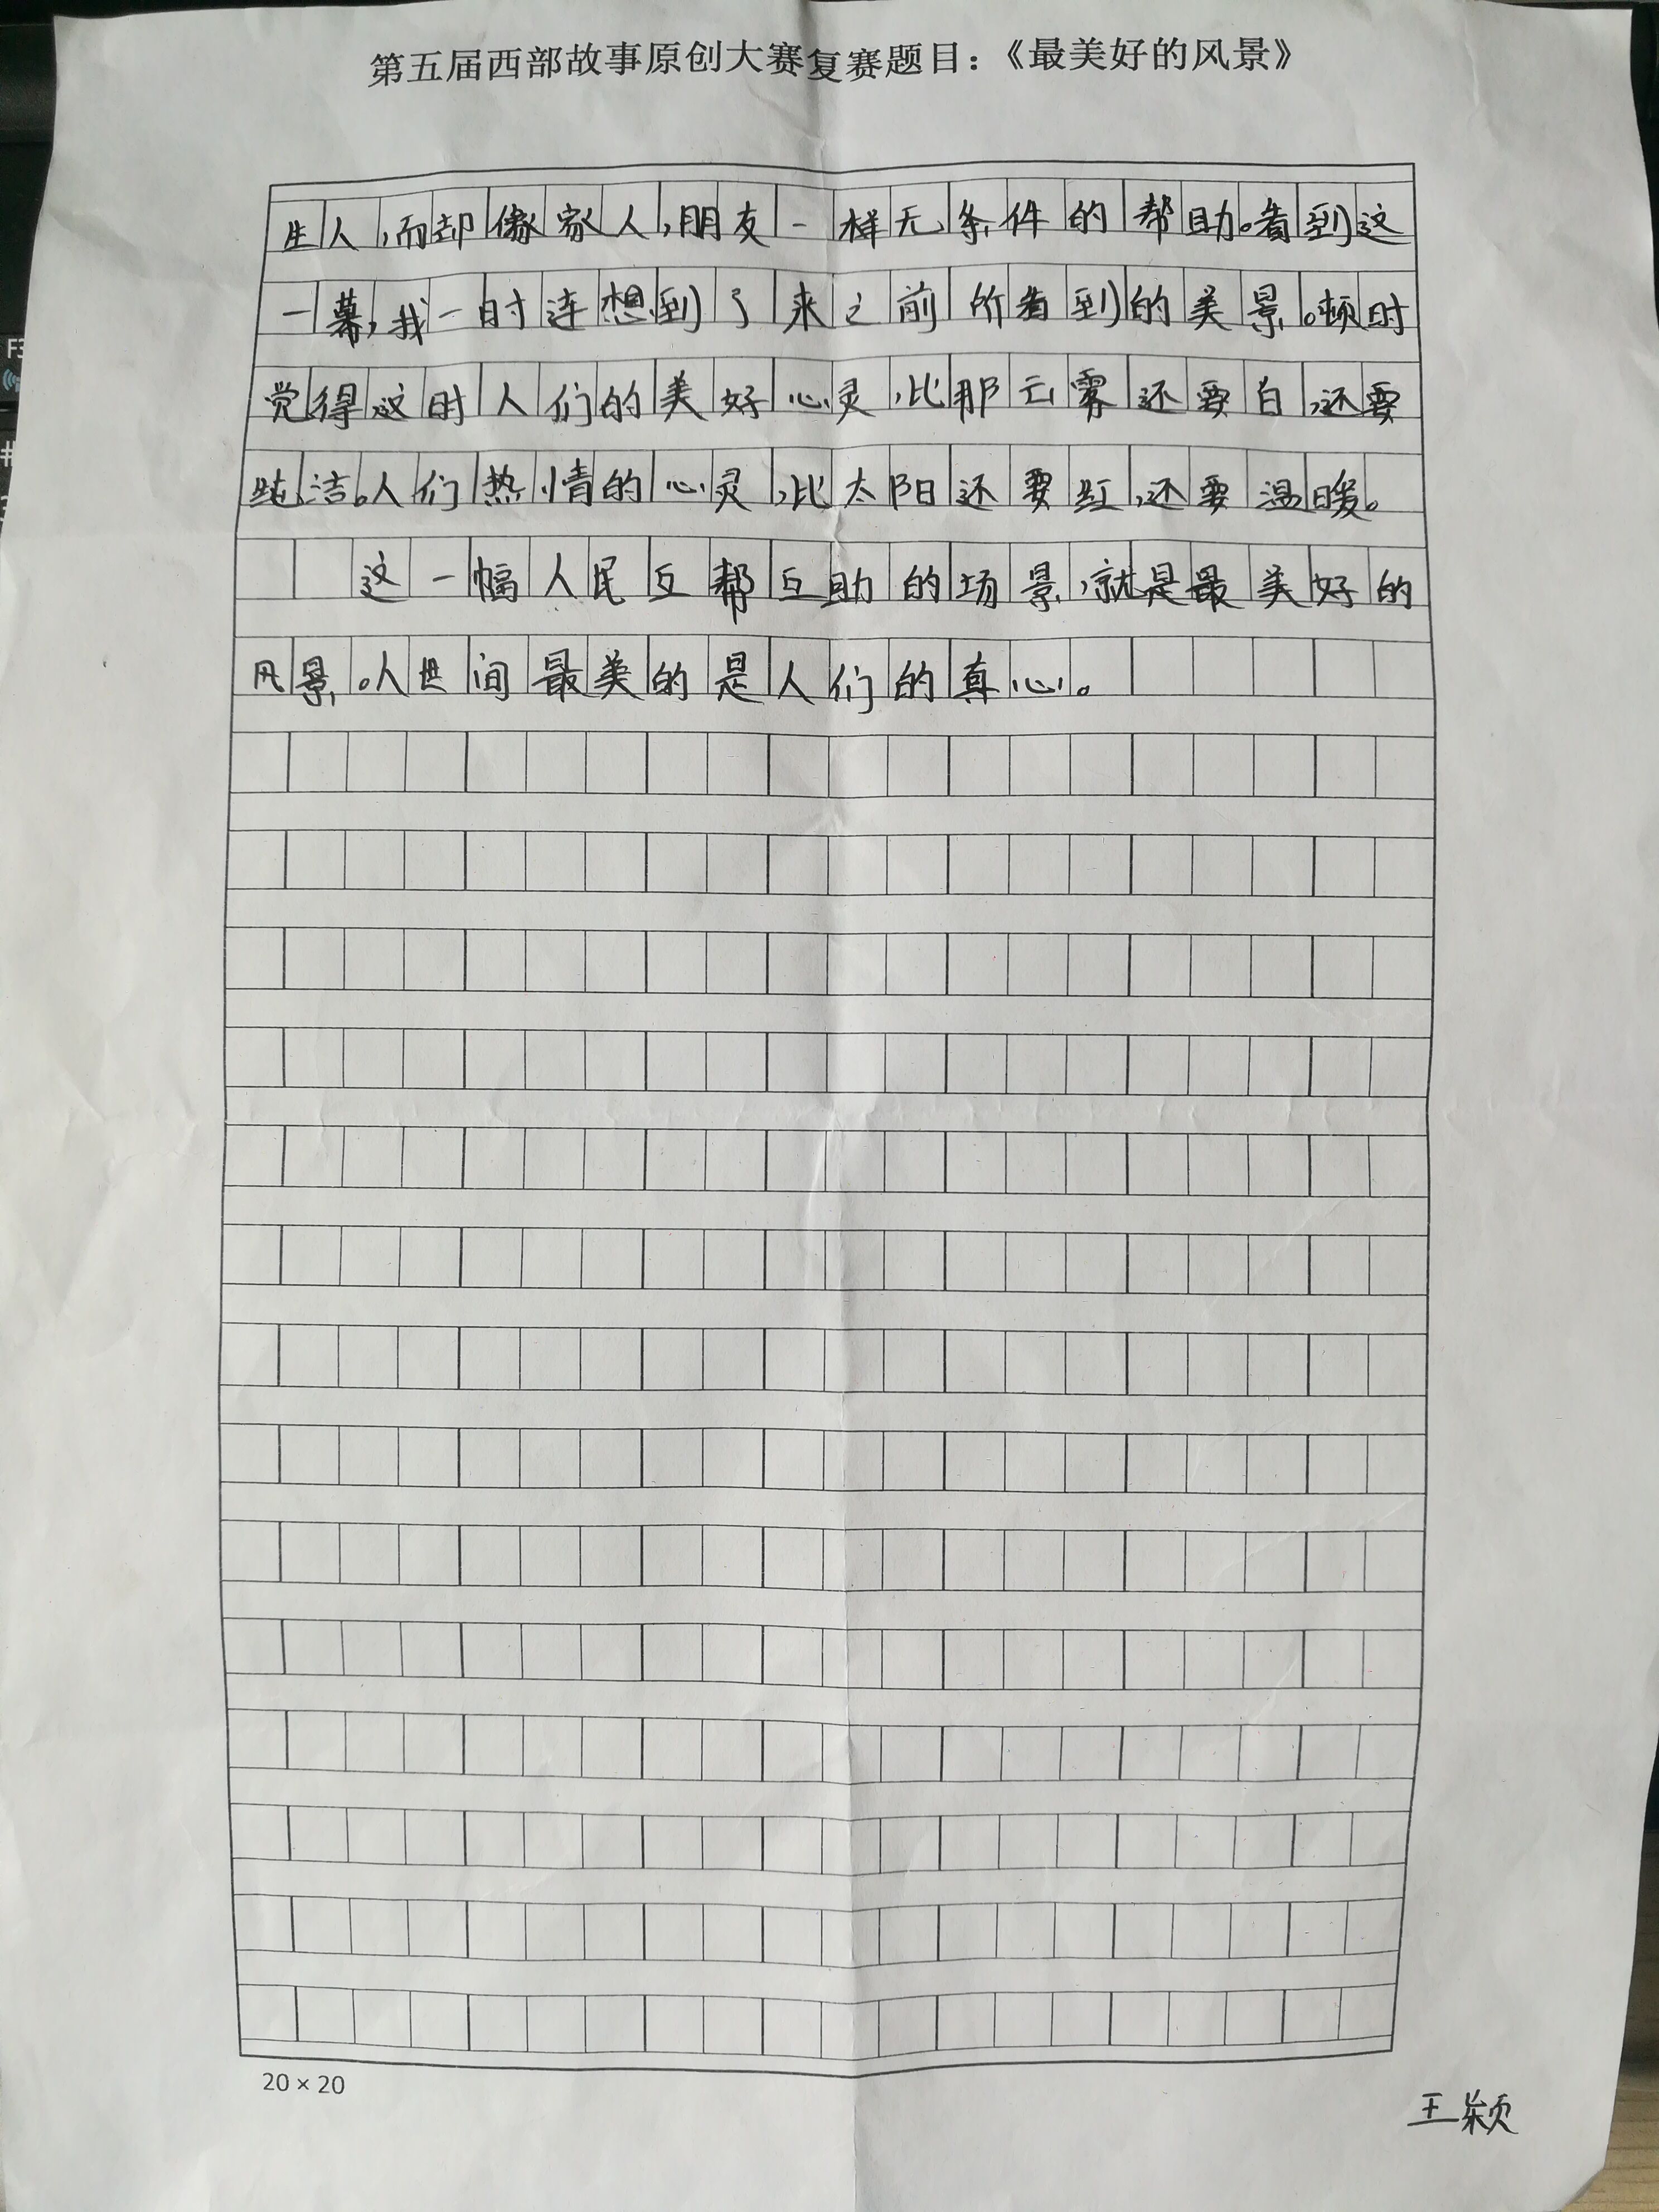 第五届西部故事原创大赛复赛题目：《最美好的风景》
生人,而却像家人,朋友一样无条件的帮助。看到这
一幕,我一时连想到了来之前所看到的美景。顿时
觉得这时人们的美好心灵,比那云雾还要白,还要
纯洁。人们热情的心灵,比太阳还要红,还要温暖。
这一幅人民互帮互助的场景,就是最美好的
风景。人世间最美的是人们的真心。
20×20
王颖